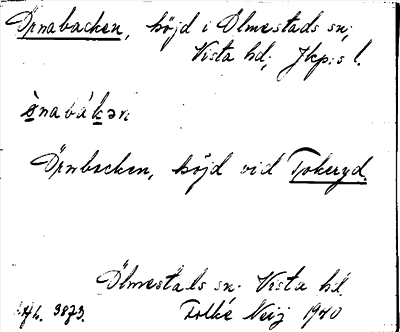 Örnabacken, höjd i Ölmestads sn;
Vista hd; Jkp:s l.
ö̀nabákən
Örnbacken, höjd vid Tokeryd.
Ölmestads sn. Vista hd.
3873. Folke Neij 1940